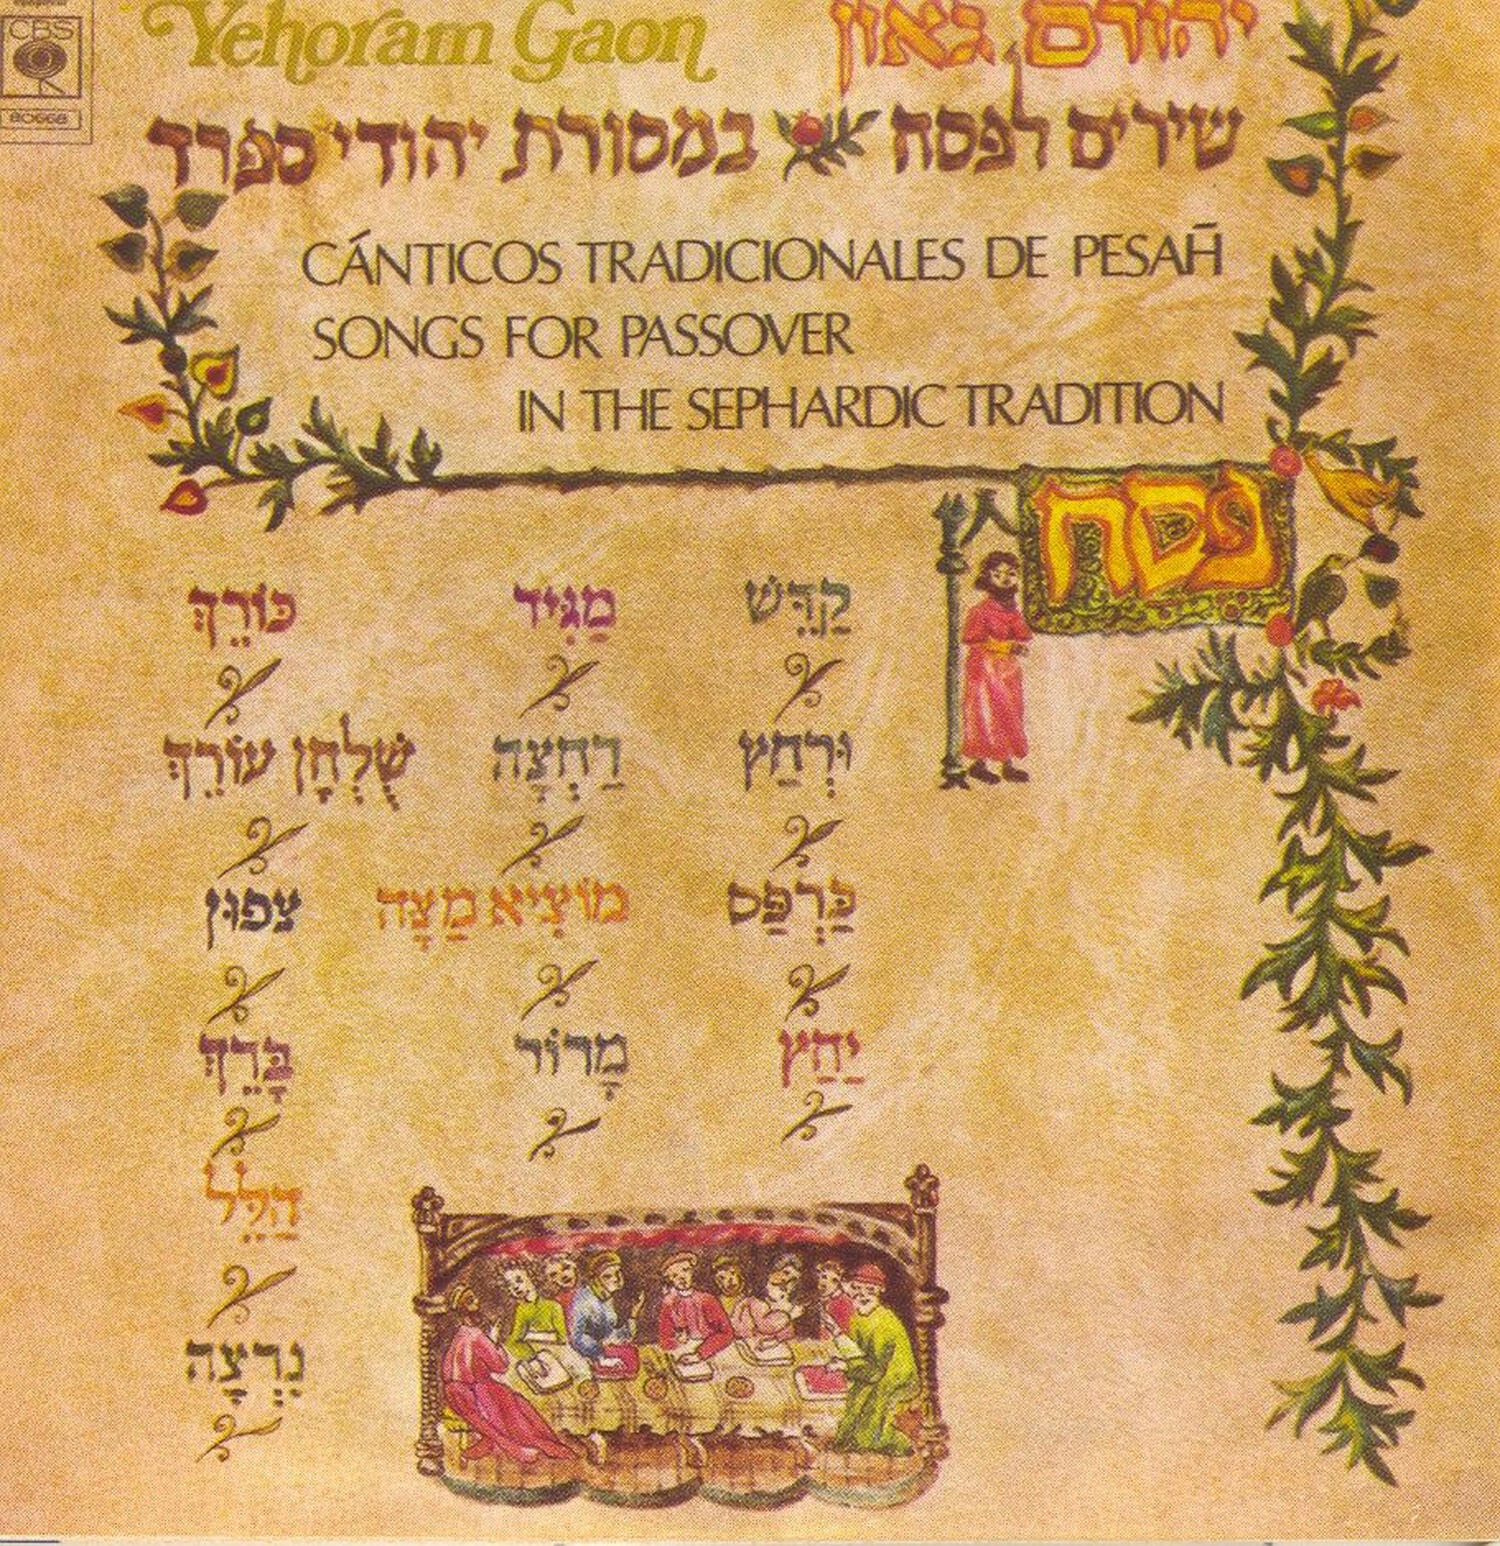 CBS
80668
Yehoram Gaon יהורם גאון
שירים לפסח במסורת יהודי ספרד
CÁNTICOS TRADICIONALES DE PESAH̄
SONGS FOR PASSOVER
IN THE SEPHARDIC TRADITION
פסח
קַדֵּשׁ
וּרְחַץ
כַּרְפַּס
יַחַץ
מַגִּיד
רַחְצָה
מוֹצִיא מַצָּה
מָרוֹר
כּוֹרֵךְ
שֻׁלְחָן עוֹרֵךְ
צָפוּן
בָּרֵךְ
הַלֵּל
נִרְצָה